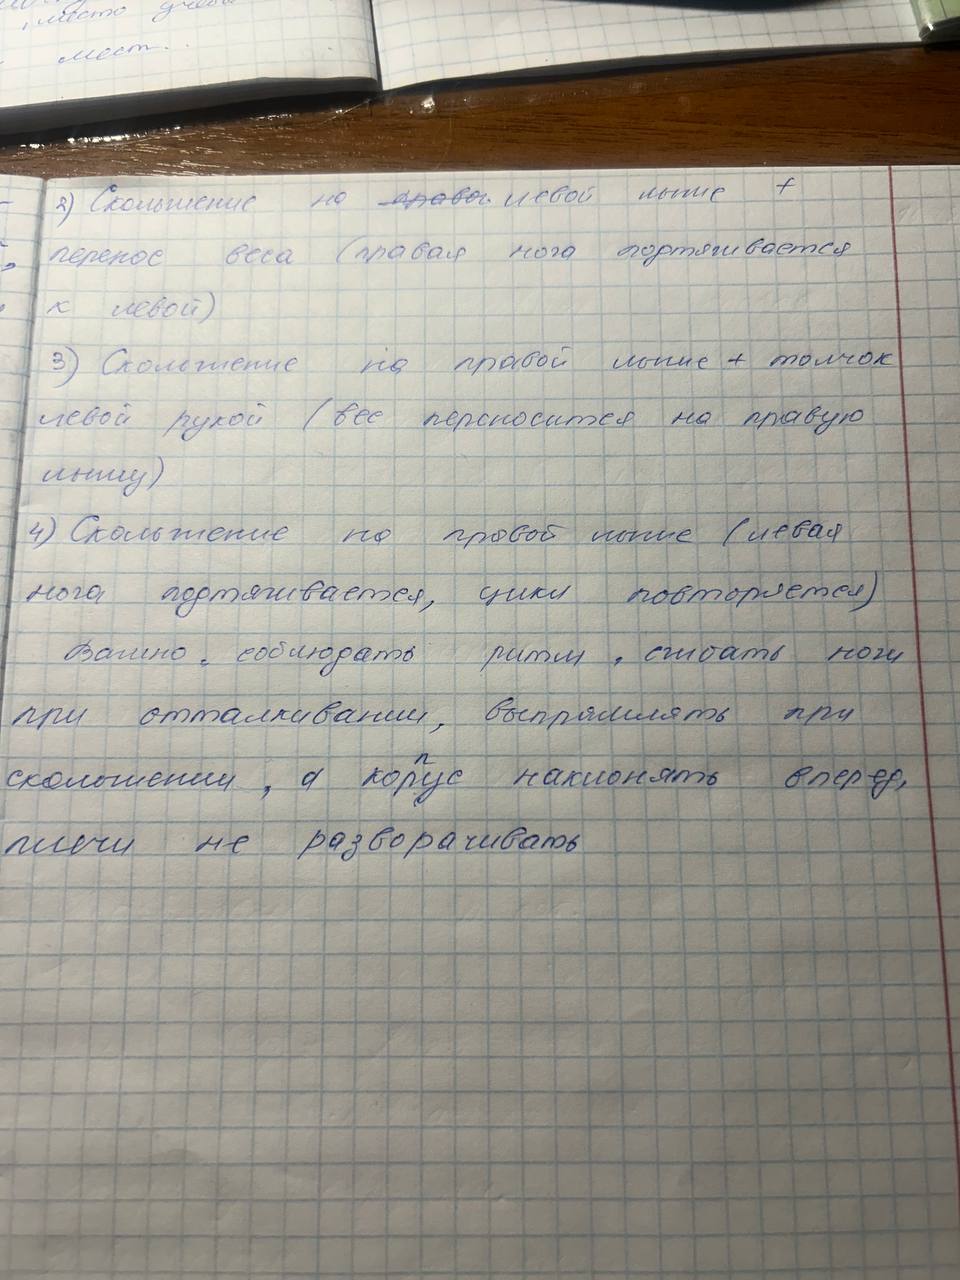 место учебы
мест..
2) Скольжение на правой левой лыже +
перенос веса (правая нога подтягивается
к левой)
3) Скольжение на правой лыже + толчок
левой рукой (вес переносится на правую
лыжу)
4) Скольжение на правой лыже (левая
нога подтягивается, цикл повторяется)
Важно. соблюдать ритм, сгибать ноги
при отталкивании, выпрямлять при
скольжении, а корпус наклонять вперед,
плечи не разворачивать